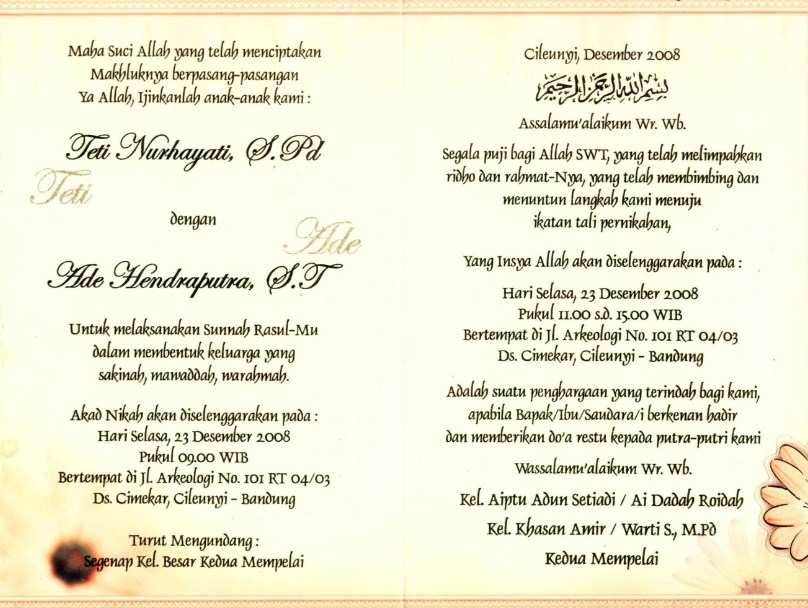 Maha Suci Allah yang telah menciptakan
Makhluknya berpasang-pasangan
Ya Allah, Ijinkanlah anak-anak kami :
Teti Nurhayati, S.Pd
Teti
dengan
Ade
Ade Hendraputra, S.T
Untuk melaksanakan Sunnah Rasul-Mu
dalam membentuk keluarga yang
sakinah, mawaddah, warahmah.
Akad Nikah akan diselenggarakan pada :
Hari Selasa, 23 Desember 2008
Pukul 09.00 WIB
Bertempat di Jl. Arkeologi No. 101 RT 04/03
Ds. Cimekar, Cileunyi - Bandung
Turut Mengundang :
Segenap Kel. Besar Kedua Mempelai
Cileunyi, Desember 2008
بسم الله الرحمن الرحيم
Assalamu'alaikum Wr. Wb.
Segala puji bagi Allah SWT, yang telah melimpahkan
ridho dan rahmat-Nya, yang telah membimbing dan
menuntun langkah kami menuju
ikatan tali pernikahan,
Yang Insya Allah akan diselenggarakan pada :
Hari Selasa, 23 Desember 2008
Pukul 11.00 s.d. 15.00 WIB
Bertempat di Jl. Arkeologi No. 101 RT 04/03
Ds. Cimekar, Cileunyi - Bandung
Adalah suatu penghargaan yang terindah bagi kami,
apabila Bapak/Ibu/Saudara/i berkenan hadir
dan memberikan do'a restu kepada putra-putri kami
Wassalamu'alaikum Wr. Wb.
Kel. Aiptu Adun Setiadi / Ai Dadah Roidah
Kel. Khasan Amir / Warti S., M.Pd
Kedua Mempelai